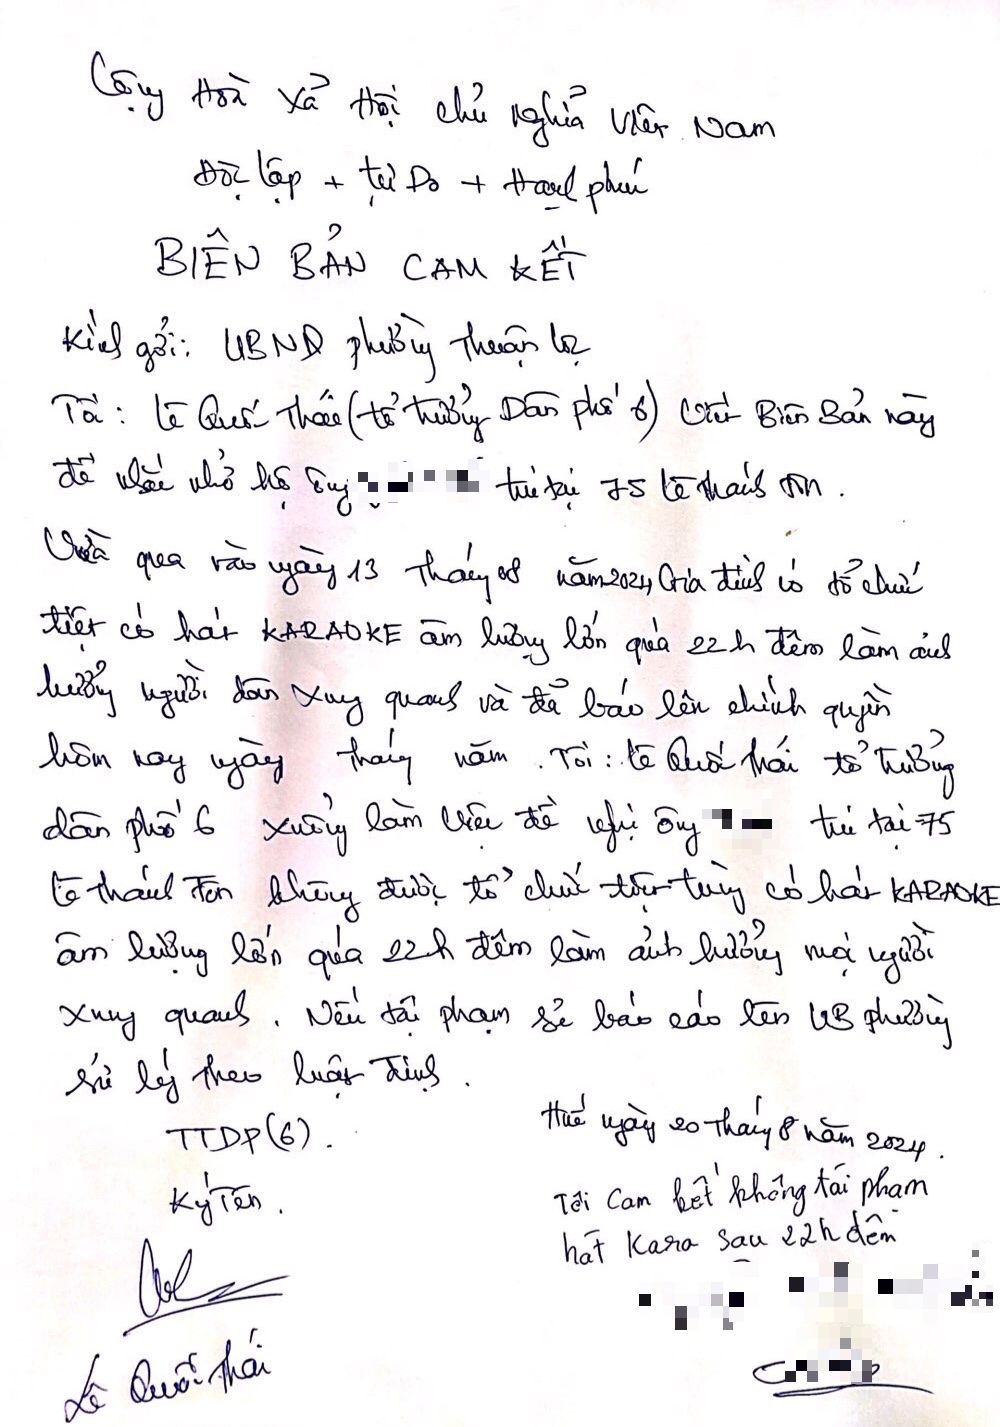 Cộng Hoà Xả Hội chủ nghỉa Việt Nam
Độc lập + tự Do + Hạnh phúc
BIÊN BẢN CAM KẾT
Kính gởi: UBND phường Thuận lộc
Tôi: lê Quốc Thái (tổ trưởng Dân phố 6) Viết Biên Bản này
để nhắc nhở hộ ông trú tại 75 lê thánh tôn.
Vừa qua vào ngày 13 tháng 08 năm 2024 Gia đình có tổ chức
tiệt có hát KARAOKE âm lượng lớn quá 22h đêm làm ảnh
hưởng người dân xung quanh và đả báo lên chính quyền
hôm nay ngày tháng năm. Tôi: lê Quốc thái tổ trưởng
dân phố 6 xuống làm việc đề nghị ông trú tại 75
lê thánh Tôn không được tổ chức tiệt tùng có hát KARAOKE
âm lượng lớn quá 22h đêm làm ảnh hưởng mọi người
xung quanh. Nếu tái phạm sẻ báo cáo lên UB phường
sử lý theo luật định.
TTDP(6).
Ký Tên.
Lê Quốc Thái
Huế ngày 20 tháng 8 năm 2024.
Tôi cam kết không tái phạm
hát Kara sau 22h đêm